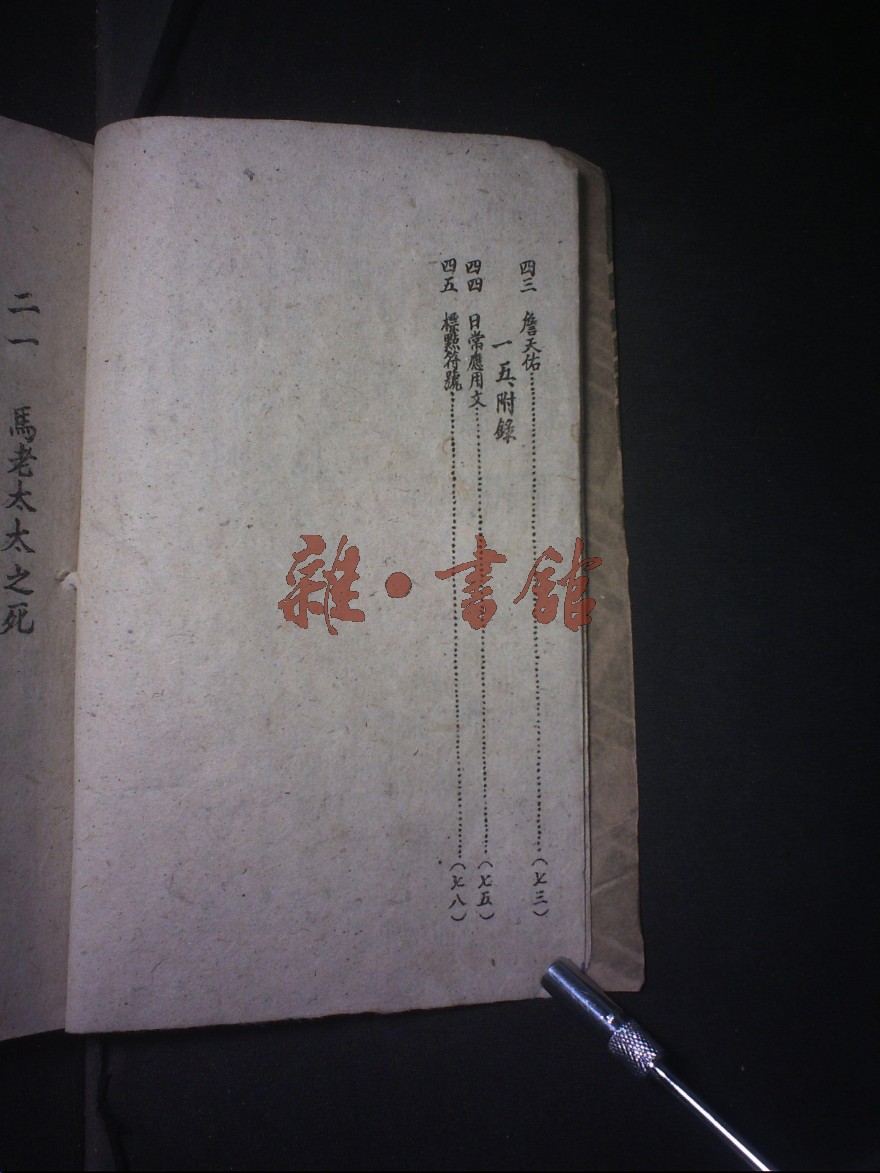 四三 詹天佑⋯⋯⋯⋯⋯⋯⋯⋯(七三)
一五、附錄
四四 日常應用文⋯⋯⋯⋯⋯⋯⋯⋯(七五)
四五 標點符號⋯⋯⋯⋯⋯⋯⋯⋯(七八)
二一 馬老太太之死
雜·書館